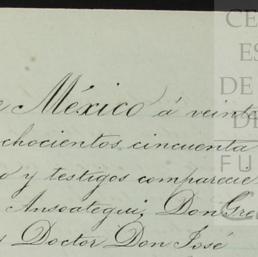 México á veinte
chocientos cincuenta
y testigos comparecie
Ansoategui, Don Gre
Doctor Don José
CE
ES
DE
DE
FU